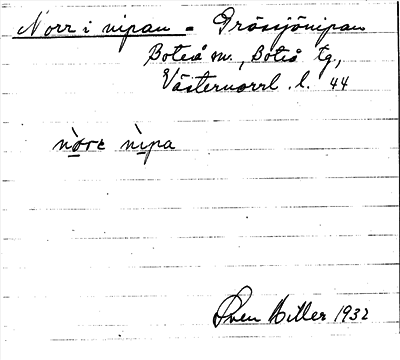 Norr i nipan = Drössjönipan
Boteå sn., Boteå tg.,
Västernorrl. l. 44
nòrɛ nìpa
Sven Miller 1932